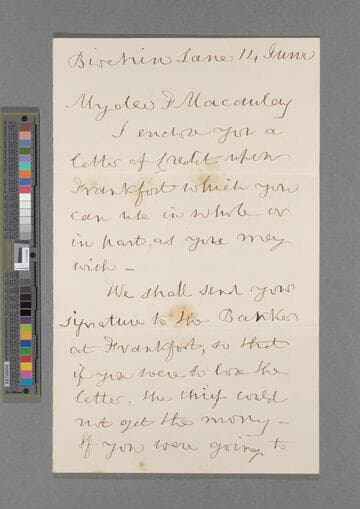 Birchin Lane 14 June
My dear F Macaulay
I enclose you a
letter of Credit upon
Frankfort which you
can use in whole or
in part, as you may
wish -
We shall send your
signature to the Banker
at Frankfort, so that
if you were to lose the
letter, the thief could
not get the money -
If you were going to